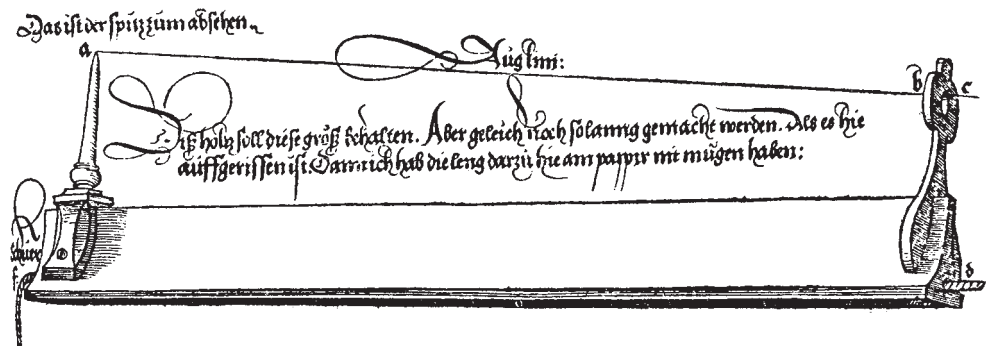 Das ist der spitz zum absehen
a
Aug lini:
b c
Diß holtz soll diese größ behalten. Aber geleich noch so lanng gemacht werden. Als es hie
auffgerissen ist. Dann ich hab die leng darzu hie am pappir nit mügen haben:
d
f